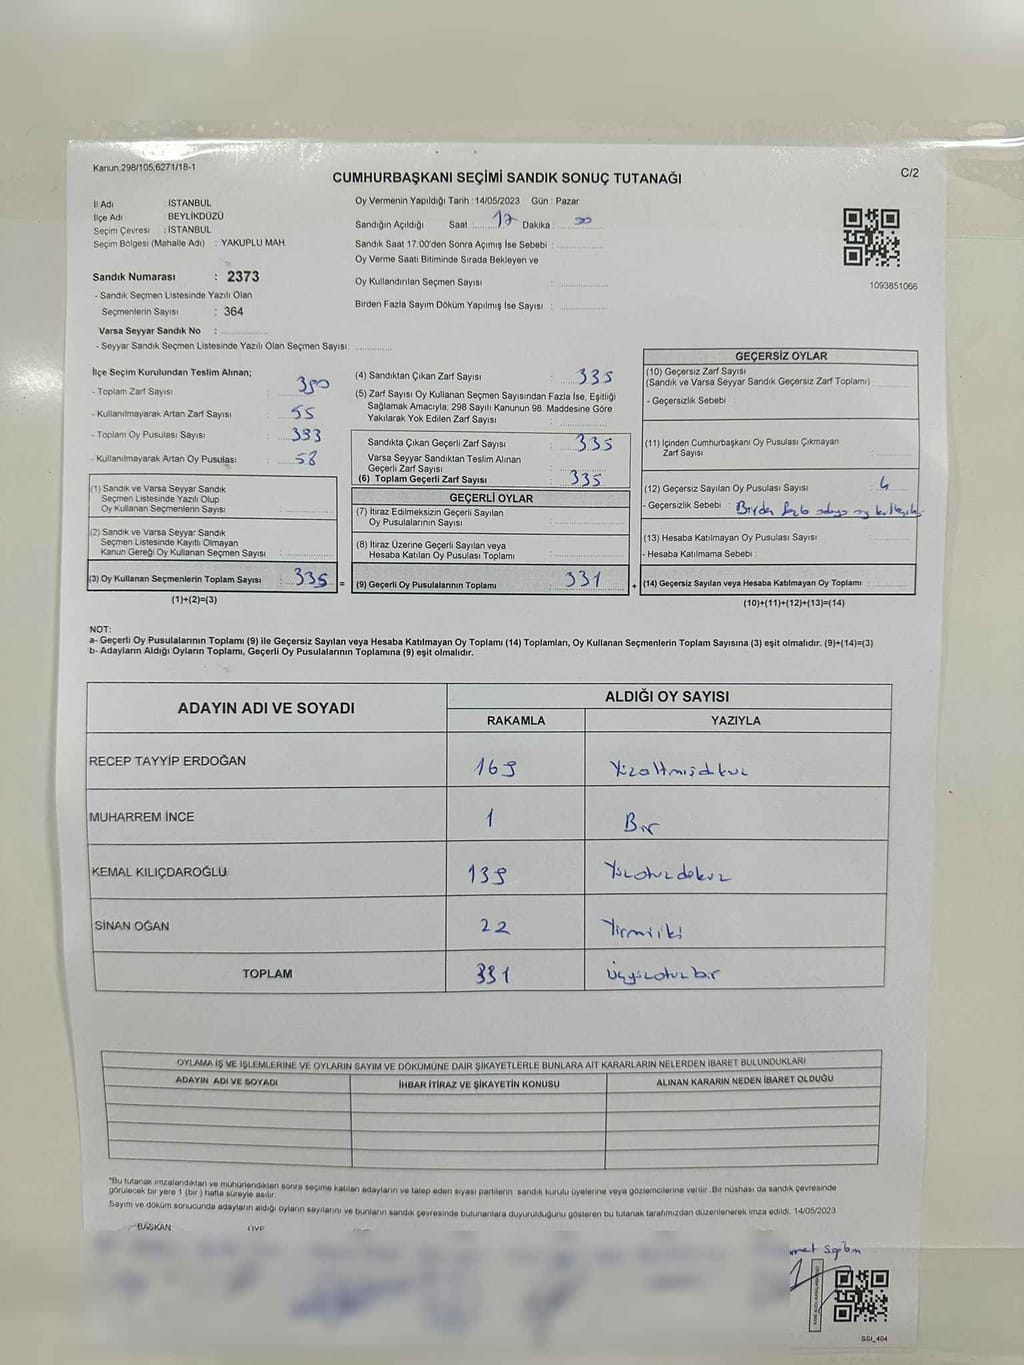 Kanun,298/105,6271/18-1
C/2
CUMHURBAŞKANI SEÇİMİ SANDIK SONUÇ TUTANAĞI
İl Adı : İSTANBUL
İlçe Adı : BEYLİKDÜZÜ
Seçim Çevresi : İSTANBUL
Seçim Bölgesi (Mahalle Adı) : YAKUPLU MAH.
Sandık Numarası : 2373
- Sandık Seçmen Listesinde Yazılı Olan
Seçmenlerin Sayısı : 364
Varsa Seyyar Sandık No :
- Seyyar Sandık Seçmen Listesinde Yazılı Olan Seçmen Sayısı:
Oy Vermenin Yapıldığı Tarih : 14/05/2023 Gün : Pazar
Sandığın Açıldığı Saat : 17 Dakika :
Sandık Saat 17:00'den Sonra Açımış İse Sebebi :
Oy Verme Saati Bitiminde Sırada Bekleyen ve
Oy Kullandırılan Seçmen Sayısı :
Birden Fazla Sayım Döküm Yapılmış İse Sayısı :
1093851066
İlçe Seçim Kurulundan Teslim Alınan;
- Toplam Zarf Sayısı : 390
- Kullanılmayarak Artan Zarf Sayısı : 55
- Toplam Oy Pusulası Sayısı : 393
- Kullanılmayarak Artan Oy Pusulası : 58
(1) Sandık ve Varsa Seyyar Sandık
Seçmen Listesinde Yazılı Olup
Oy Kullanan Seçmenlerin Sayısı :
(2) Sandık ve Varsa Seyyar Sandık
Seçmen Listesinde Kayıtlı Olmayan
Kanun Gereği Oy Kullanan Seçmen Sayısı :
(3) Oy Kullanan Seçmenlerin Toplam Sayısı : 335 =
(1)+(2)=(3)
(4) Sandıktan Çıkan Zarf Sayısı : 335
(5) Zarf Sayısı Oy Kullanan Seçmen Sayısından Fazla İse, Eşitliği
Sağlamak Amacıyla, 298 Sayılı Kanunun 98. Maddesine Göre
Yakılarak Yok Edilen Zarf Sayısı :
Sandıkta Çıkan Geçerli Zarf Sayısı : 335
Varsa Seyyar Sandıktan Teslim Alınan
Geçerli Zarf Sayısı :
(6) Toplam Geçerli Zarf Sayısı : 335
GEÇERLİ OYLAR
(7) İtiraz Edilmeksizin Geçerli Sayılan
Oy Pusulalarının Sayısı :
(8) İtiraz Üzerine Geçerli Sayılan veya
Hesaba Katılan Oy Pusulası Toplamı :
(9) Geçerli Oy Pusulalarının Toplamı : 331 +
GEÇERSİZ OYLAR
(10) Geçersiz Zarf Sayısı
(Sandık ve Varsa Seyyar Sandık Geçersiz Zarf Toplamı) :
- Geçersizlik Sebebi :
(11) İçinden Cumhurbaşkanı Oy Pusulası Çıkmayan
Zarf Sayısı :
(12) Geçersiz Sayılan Oy Pusulası Sayısı : 4
- Geçersizlik Sebebi : Birden fazla adaya oy
(13) Hesaba Katılmayan Oy Pusulası Sayısı :
- Hesaba Katılmama Sebebi :
(14) Geçersiz Sayılan veya Hesaba Katılmayan Oy Toplamı :
(10)+(11)+(12)+(13)=(14)
NOT:
a- Geçerli Oy Pusulalarının Toplamı (9) ile Geçersiz Sayılan veya Hesaba Katılmayan Oy Toplamı (14) Toplamları, Oy Kullanan Seçmenlerin Toplam Sayısına (3) eşit olmalıdır. (9)+(14)=(3)
b- Adayların Aldığı Oyların Toplamı, Geçerli Oy Pusulalarının Toplamına (9) eşit olmalıdır.
ADAYIN ADI VE SOYADI
ALDIĞI OY SAYISI
RAKAMLA YAZIYLA
RECEP TAYYİP ERDOĞAN 169 Yüzaltmışdokuz
MUHARREM İNCE 1 Bir
KEMAL KILIÇDAROĞLU 139 Yüzotuzdokuz
SİNAN OĞAN 22 Yirmiiki
TOPLAM 331 Üçyüzotuzbir
OYLAMA İŞ VE İŞLEMLERİNE VE OYLARIN SAYIM VE DÖKÜMÜNE DAİR ŞİKAYETLERLE BUNLARA AİT KARARLARIN NELERDEN İBARET BULUNDUKLARI
ADAYIN ADI VE SOYADI İHBAR İTİRAZ VE ŞİKAYETİN KONUSU ALINAN KARARIN NEDEN İBARET OLDUĞU
*Bu tutanak imzalandıktan ve mühürlendikten sonra seçime katılan adayların ve talep eden siyasi partilerin sandık kurulu üyelerine veya gözlemcilerine verilir. Bir nüshası da sandık çevresinde
görülecek bir yere 1 (bir ) hafta süreyle asılır.
Sayım ve döküm sonucunda adayların aldığı oyların sayılarını ve bunların sandık çevresinde bulunanlara duyurulduğunu gösteren bu tutanak tarafımızdan düzenlenerek imza edildi. 14/05/2023
BAŞKAN ÜYE
SSI_404